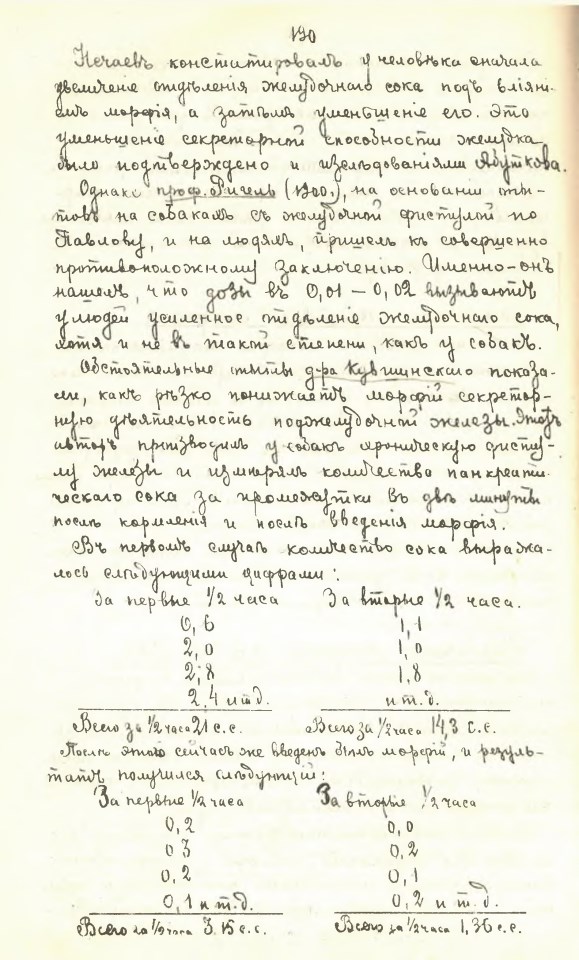 130
Нечаевъ констатировалъ у человѣка сначала
увеличеніе отдѣленія желудочнаго сока подъ вліяні-
емъ морфія, а затѣмъ уменьшеніе его. Это
уменьшеніе секреторной способности желудка
было подтверждено и изслѣдованіями Абуткова.
Однако проф. Ригель (1900,), на основаніи опы-
товъ на собакахъ съ желудочной фистулой по
Павлову, и на людяхъ, пришелъ къ совершенно
противоположному заключенію. Именно-онъ
нашелъ, что дозы въ 0,01 – 0,02 вызываютъ
у людей усиленное отдѣленіе желудочнаго сока,
хотя и не въ такой степени, какъ у собакъ.
Обстоятельные опыты д-ра Кувшинскаго показа-
ли, какъ рѣзко понижаетъ морфій секретор-
ную дѣятельность поджелудочной железы. Этотъ
авторъ производилъ у собакъ хроническую фисту-
лу железы и измѣрялъ количества панкреати-
ческаго сока за промежутки въ двѣ минуты
послѣ кормленія и послѣ введенія морфія.
Въ первомъ случаѣ количество сока выража-
лось слѣдующими цифрами:
За первые 1/2 часа За вторые 1/2 часа.
0,6 1,1
2,0 1,0
2,8 1,8
2,4 и т.д. и т.д.
Всего за 1/2 часа 21 с.с. Всего за 1/2 часа 14,3 с.с.
Послѣ этого сейчасъ же введенъ былъ морфій, и резуль-
татъ получился слѣдующій:
За первые 1/2 часа За вторые 1/2 часа
0,2 0,0
0 3 0,2
0,2 0,1
0,1 и т.д. 0,2 и т.д.
Всего за 1/2 часа 3.15 с.с. Всего за 1/2 часа 1,36 с.с.